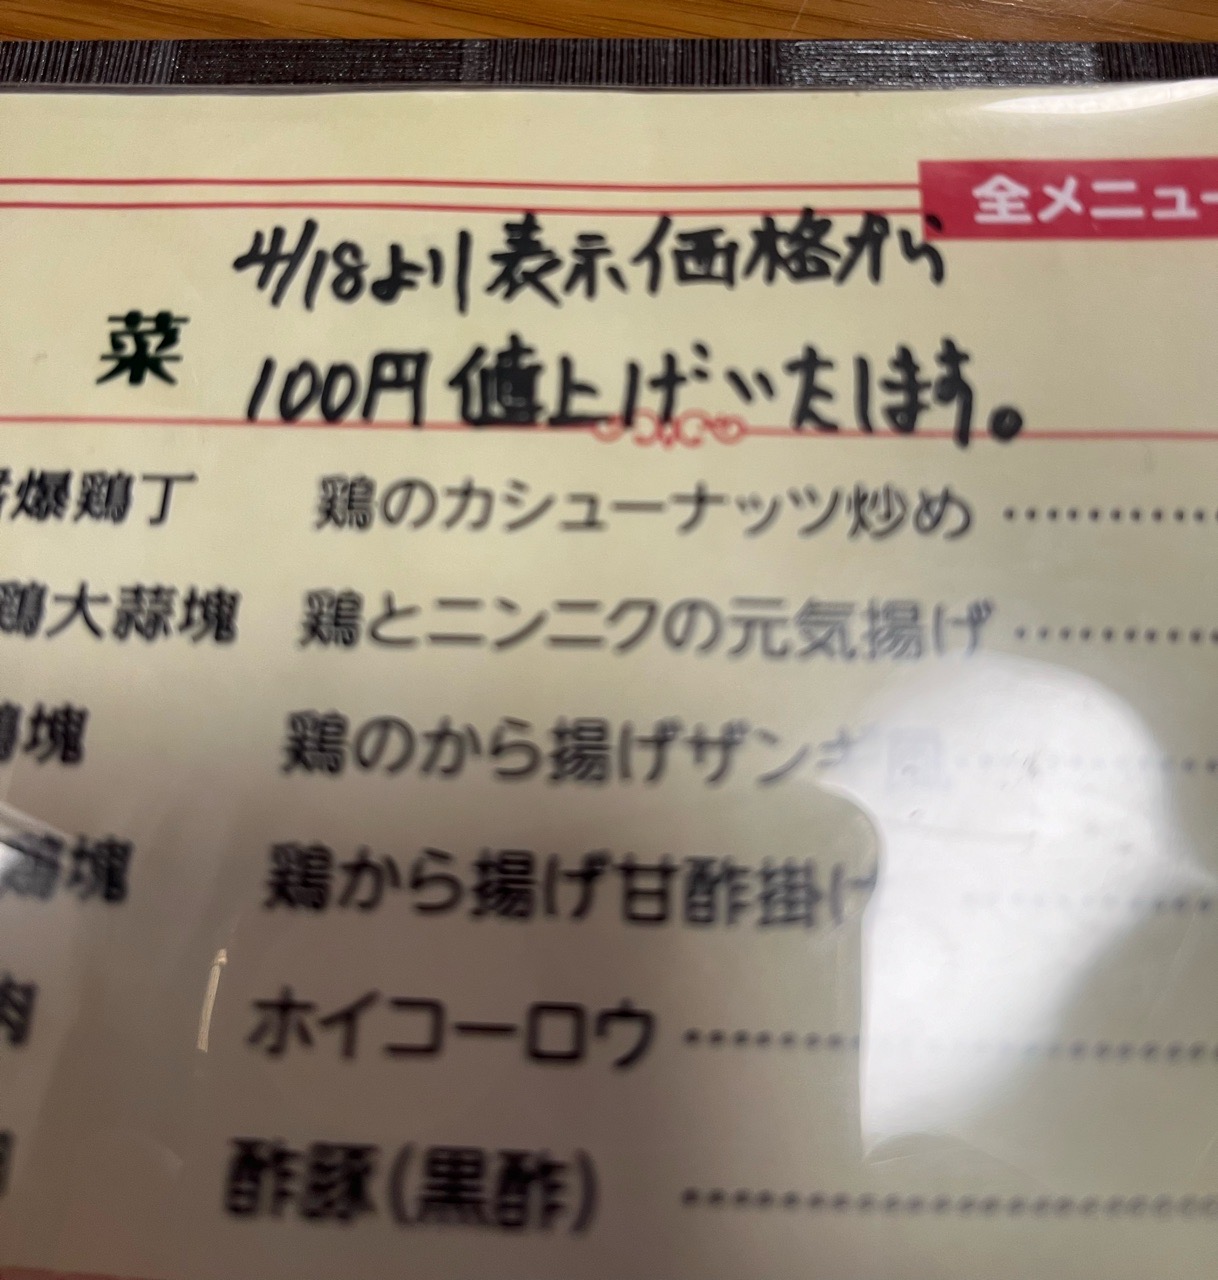 全メニュー
4/18より表示価格から
菜
100円値上げいたします。
爆鶏丁 鶏のカシューナッツ炒め
鶏大蒜塊 鶏とニンニクの元気揚げ
塊 鶏のから揚げザンギ風
塊 鶏から揚げ甘酢掛け
肉 ホイコーロウ
酢豚(黒酢)